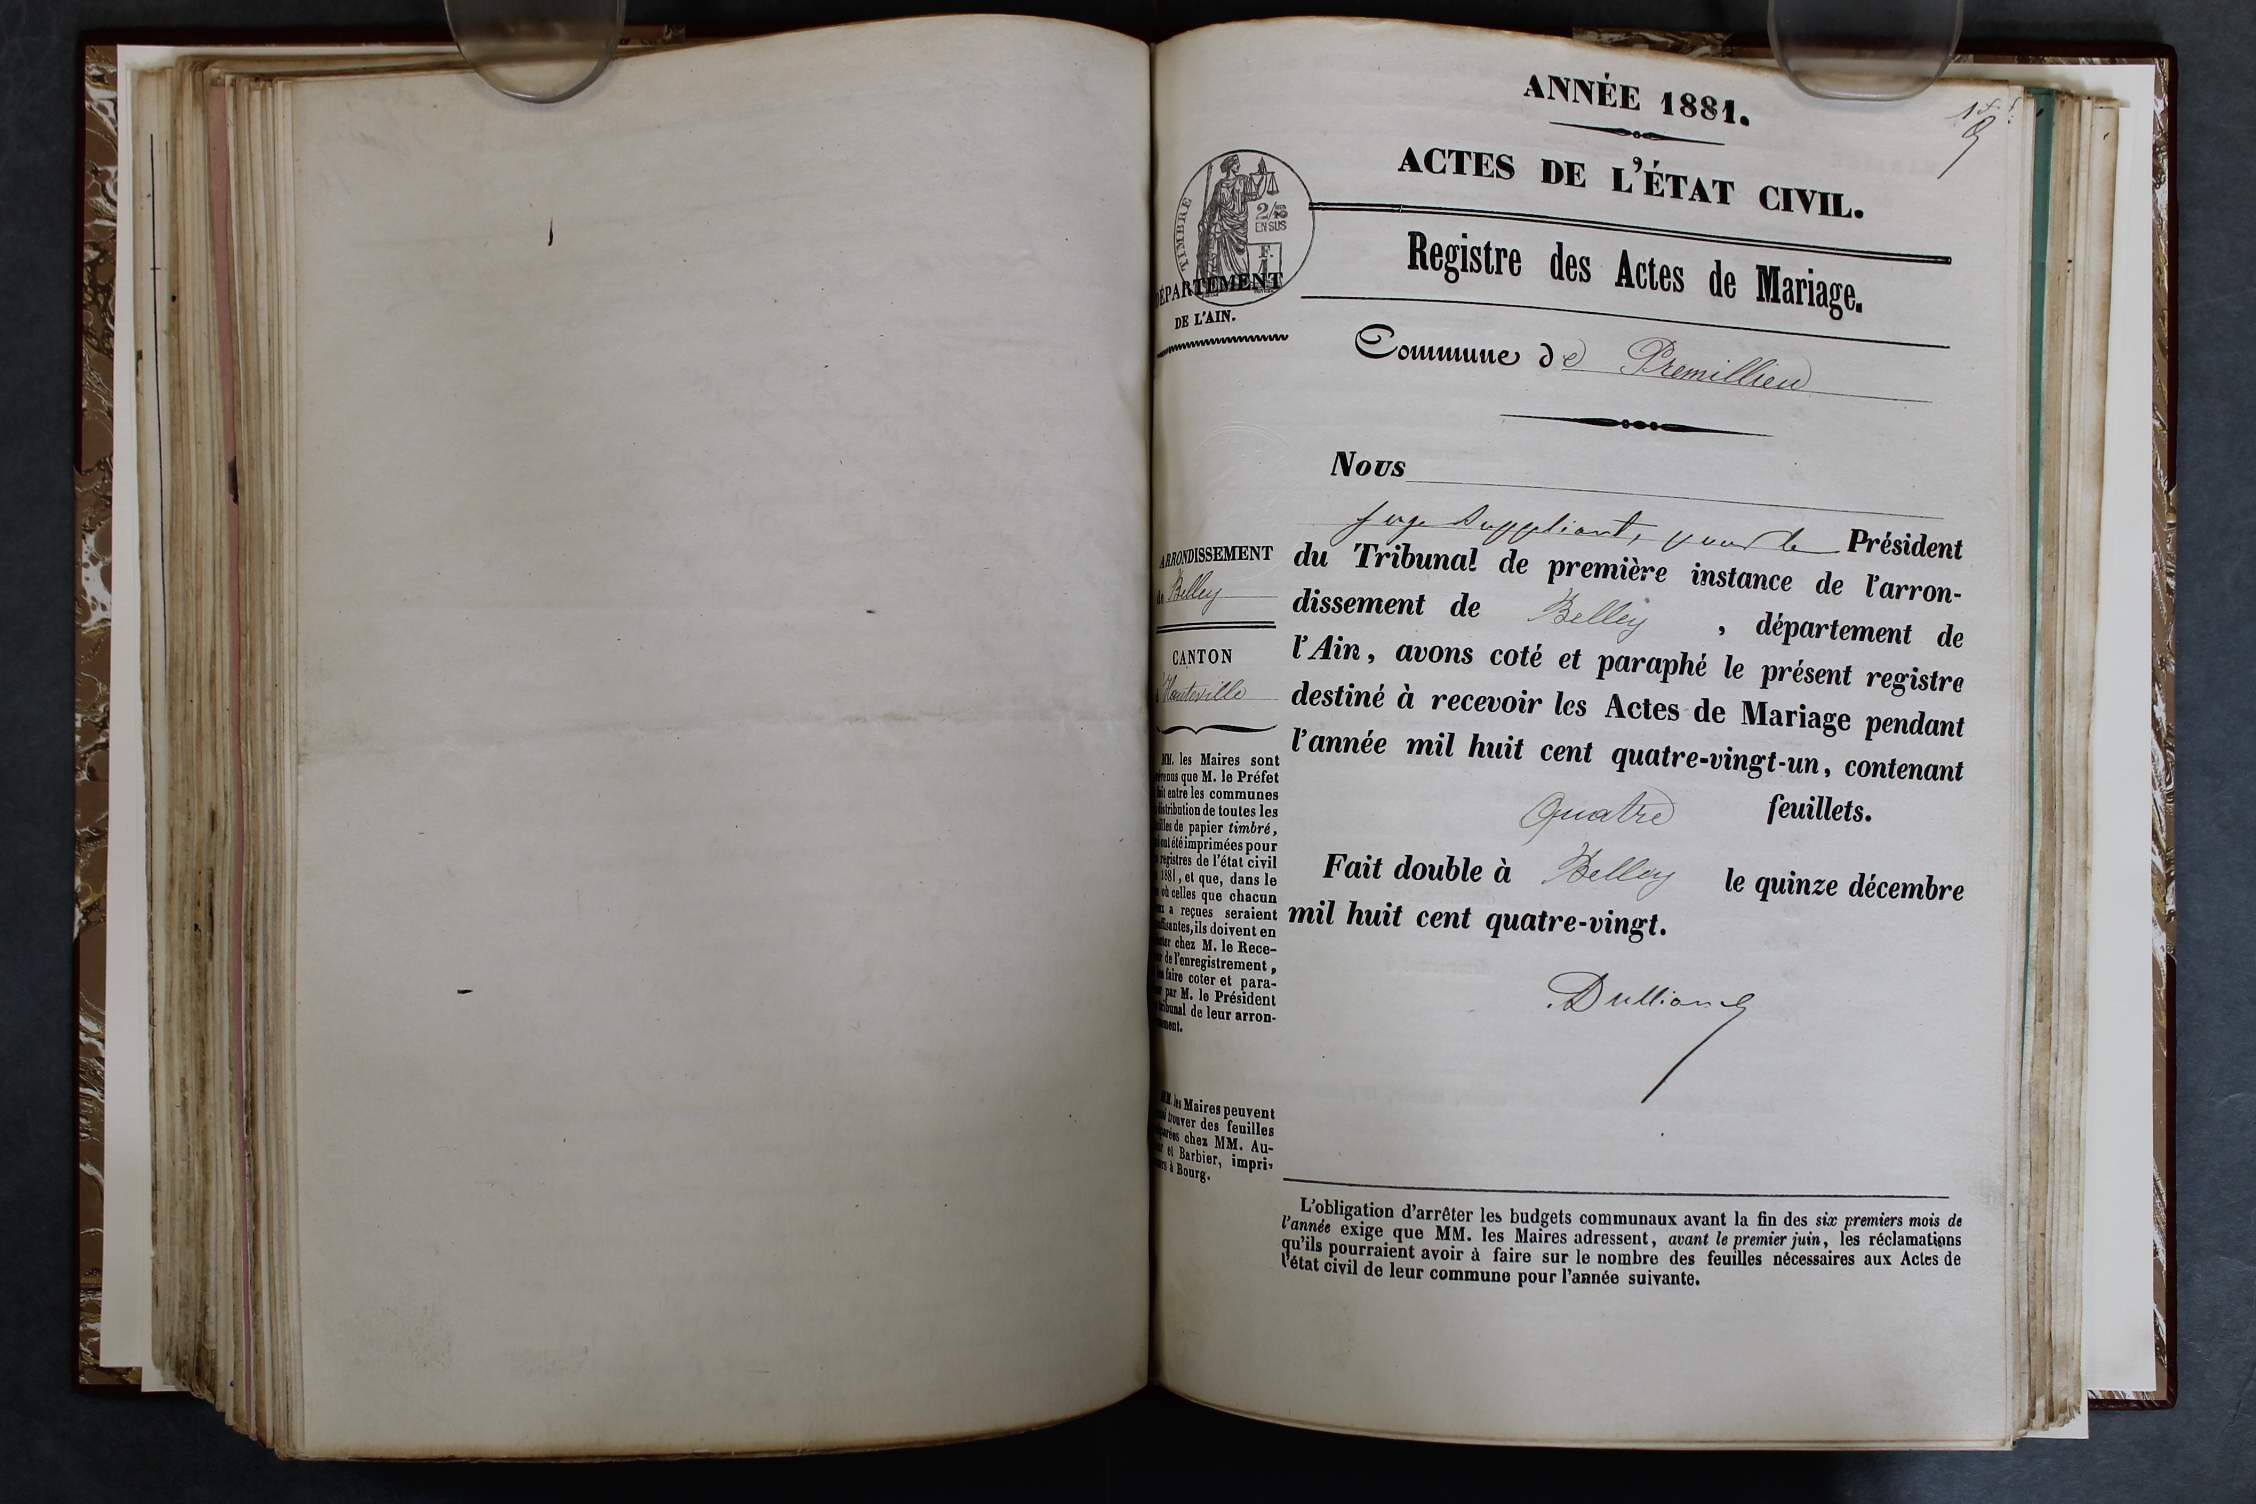 ANNÉE 1881.
1er f.
ACTES DE L'ÉTAT CIVIL.
TIMBRE
2/10
EN SUS
F.
DÉPARTEMENT
DE L'AIN.
Registre des Actes de Mariage.
Commune de Premillieu
Nous
Juge Suppléant, pour le Président
du Tribunal de première instance de l'arron-
dissement de Belley, département de
l'Ain, avons coté et paraphé le présent registre
destiné à recevoir les Actes de Mariage pendant
l'année mil huit cent quatre-vingt-un, contenant
Quatre feuillets.
Fait double à Belley le quinze décembre
mil huit cent quatre-vingt.
ARRONDISSEMENT
de Belley
CANTON
Hauteville
MM. les Maires sont
que M. le Préfet
entre les communes
distribution de toutes les
de papier timbré,
ont été imprimées pour
registres de l'état civil
1881, et que, dans le
où celles que chacun
a reçues seraient
ils doivent en
chez M. le Rece-
de l'enregistrement,
faire coter et para-
par M. le Président
tribunal de leur arron-
MM. les Maires peuvent
trouver des feuilles
chez MM. Au-
et Barbier, impri-
à Bourg.
L'obligation d'arrêter les budgets communaux avant la fin des six premiers mois de
l'année exige que MM. les Maires adressent, avant le premier juin, les réclamations
qu'ils pourraient avoir à faire sur le nombre des feuilles nécessaires aux Actes de
l'état civil de leur commune pour l'année suivante.